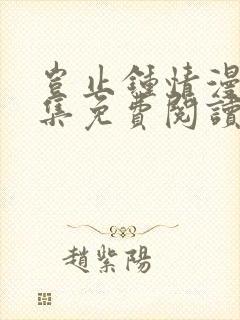 豈止鍾情漫
集免費閱讀
趙紫陽